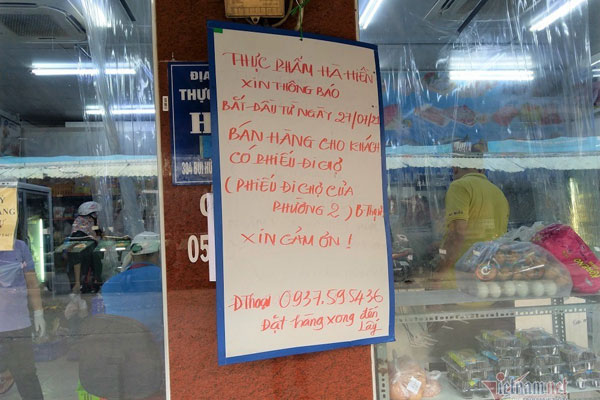 THỰC PHẨM HÀ HIỀN
XIN THÔNG BÁO
BẮT ĐẦU TỪ NGÀY 27/07/2
BÁN HÀNG CHO KHÁCH
CÓ PHIẾU ĐI CHỢ
(PHIẾU ĐI CHỢ CỦA
PHƯỜNG 2) B.Thạnh
XIN CẢM ƠN!
Đ Thoại 0937.595436
Đặt hàng xong đến
Lấy
ĐỊA
THỰC
H
304 BÙI H
05
vietnam.net